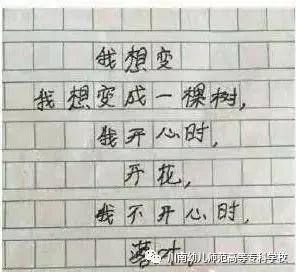 我想变
我想变成一棵树，
我开心时，
开花，
我不开心时，
落叶
川南幼儿师范高等专科学校